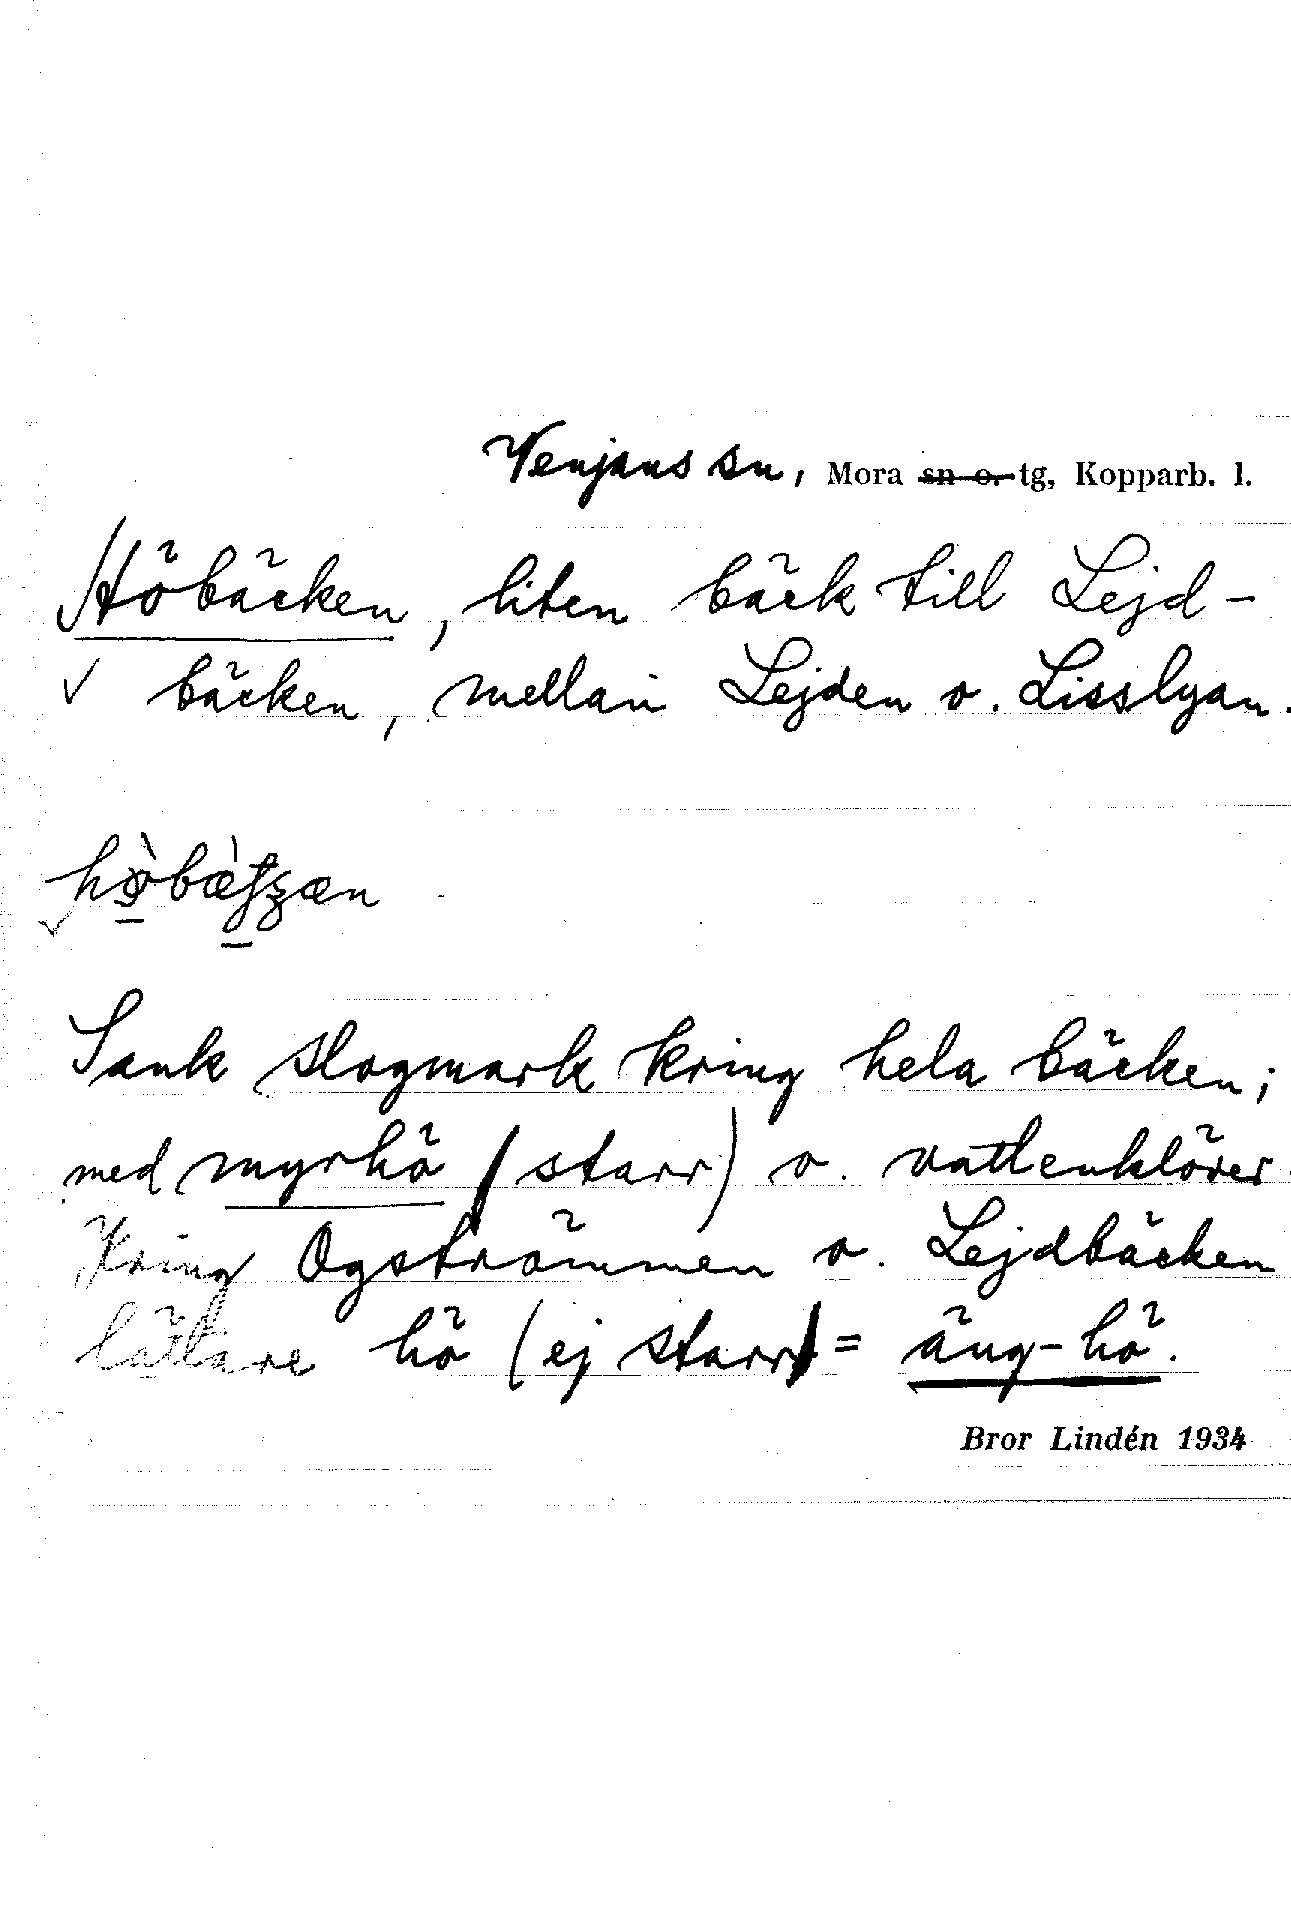 Venjans sn, Mora sn o. tg, Kopparb. l.
Höbäcken, liten bäck till Lejd-
√ bäcken, mellan Lejden o. Lisslyan.
Sank slogmark kring hela bäcken;
med myrhö (starr) o. vattenklöver.
Kring Ogströmmen o. Lejdbäcken
lättare hö (ej starr) = äng-hö.
Bror Lindén 1934